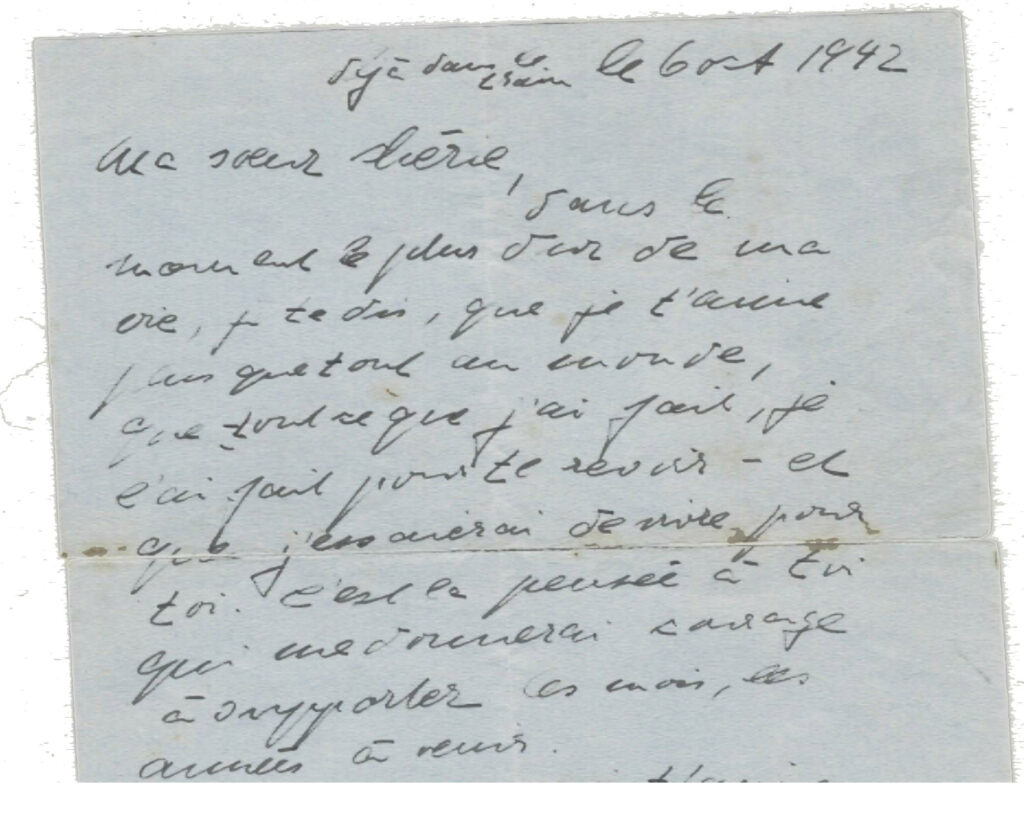 déjà dans le train le 6 oct 1942
Ma soeur chérie,
dans le
moment le plus dur de ma
vie, je te dis, que je t'aime
plus que tout au monde,
que tout ce que j'ai fait, je
l'ai fait pour te revoir - et
que j'essaierai de vivre pour
toi. C'est la pensée à toi
qui me donnerai courage
à supporter les mois, les
années à venir.
t'aime